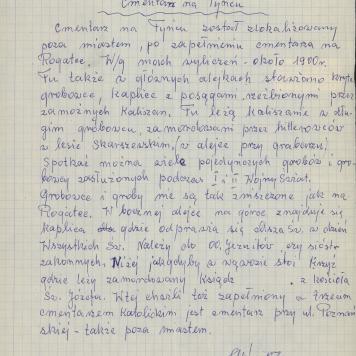 Cmentarz na Tyńcu
Cmentarz na Tyńcu został zlokalizowany
poza miastem, po zapełnieniu cmentarza na
Rogatce. W/g moich wyliczeń - około 1900r.
Tu także w głównych alejkach stawiano kryte
grobowce, kaplice z posągami rzeźbionymi przez
zamożnych Kaliszan. Tu leżą Kaliszanie w dłu-
gim grobowcu, zamordowani przez hitlerowców
w lesie Skarszewskim (w alejce przy grabarzu).
Spotkać można wiele pojedynczych grobów i gro-
bowcy zasłużonych podczas I i II Wojny Świat.
Grobowce i groby nie są tak zniszczone jak na
Rogatce. W bocznej alejce na górce znajduje się
kaplica gdzie odprawia się Msza Św. w dzień
Wszystkich Św. Należy do OO. Jezuitów czy sióstr
zakonnych. Niżej jakgdyby w wąwozie stoi krzyż
gdzie leży zamordowany ksiądz z kościoła
Św. Józefa. W tej chwili też zapełniony a trzecim
cmentarzem katolickim jest cmentarz przy ul. Poznań-
skiej - także poza miastem.